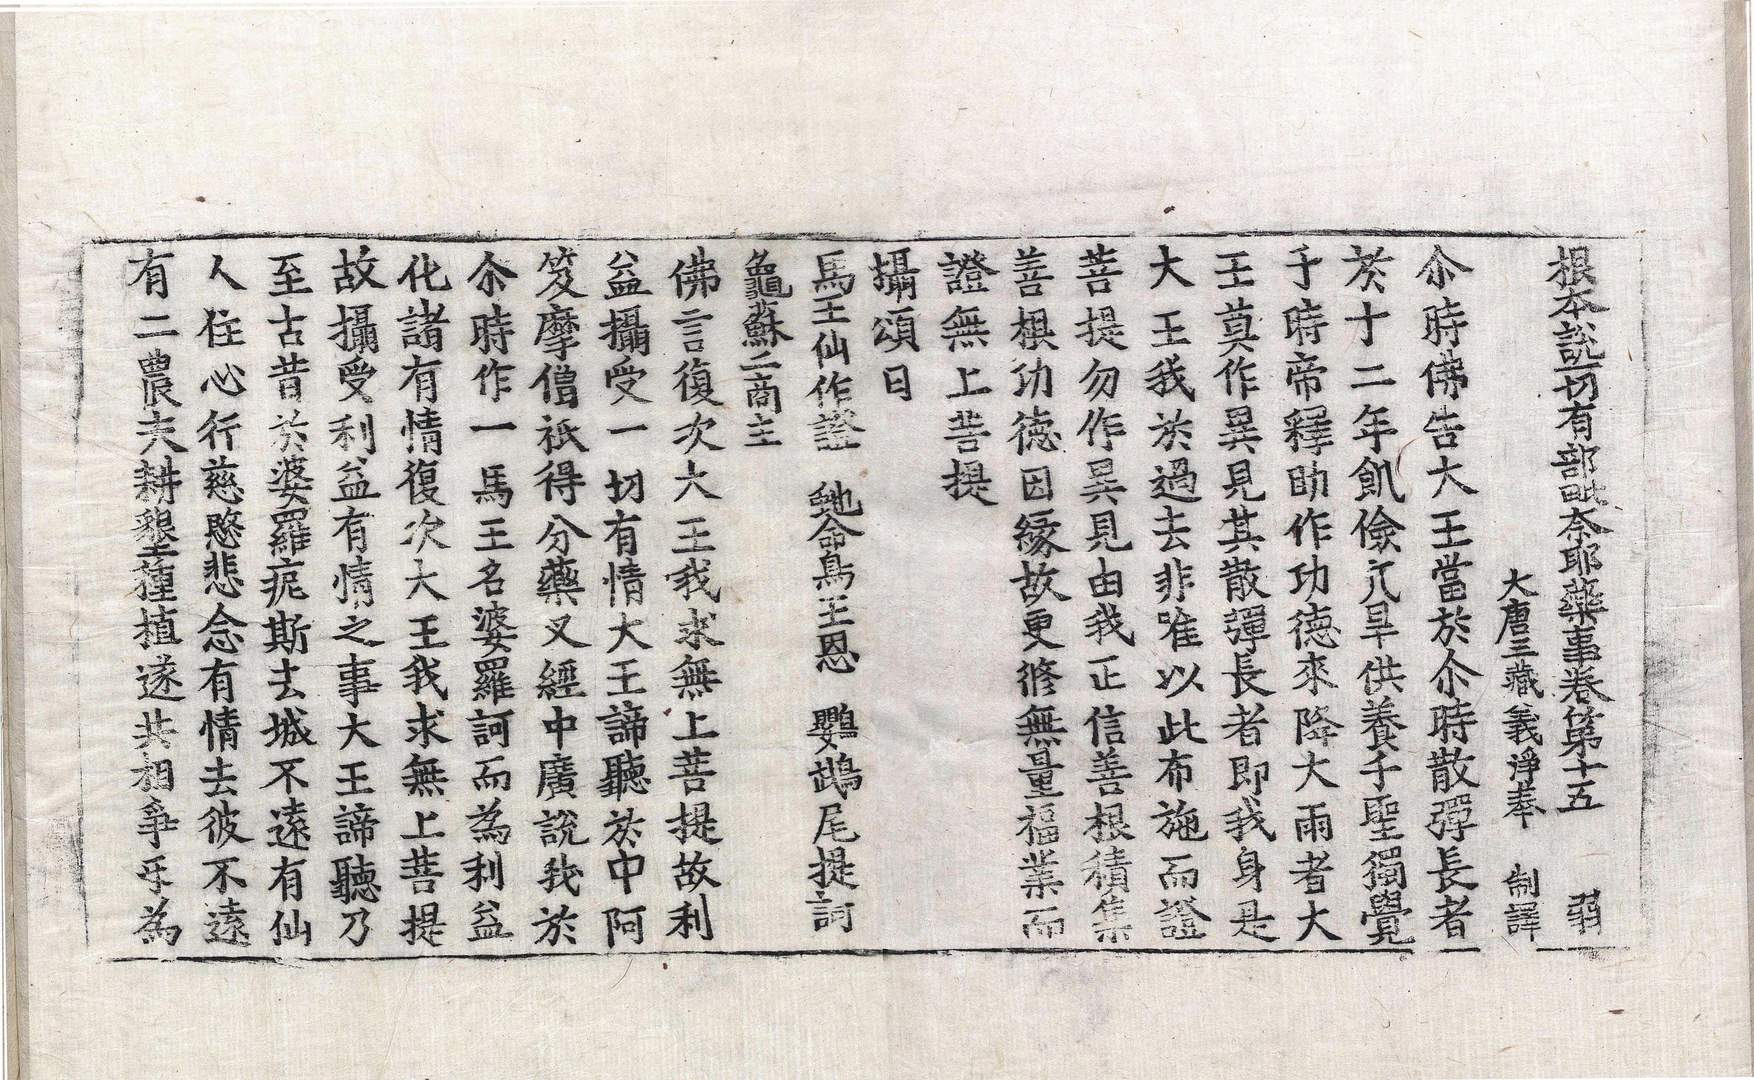 根本說一切有部毗奈耶藥事卷第十五 弱
大唐三藏義淨奉 制譯
尒時佛告大王當於尒時散彈長者
於十二年飢儉亢旱供養千聖獨覺
于時帝釋助作功德來降大雨者大
王莫作異見其散彈長者即我身是
大王我於過去非唯以此布施而證
菩提勿作異見由我正信善根積集
善根功德因緣故更修無量福業而
證無上菩提
攝頌曰
馬王仙作證 䖝命鳥王恩 鸚鵡尾提訶
龜蘇二商主
佛言復次大王我求無上菩提故利
益攝受一切有情大王諦聽於中阿
笈摩僧祇得分藥叉經中廣說我於
尒時作一馬王名婆羅訶而為利益
化諸有情復次大王我求無上菩提
故攝受利益有情之事大王諦聽乃
至古昔於婆羅痆斯去城不遠有仙
人住心行慈愍悲念有情去彼不遠
有二農夫耕墾種植遂共相爭乎為